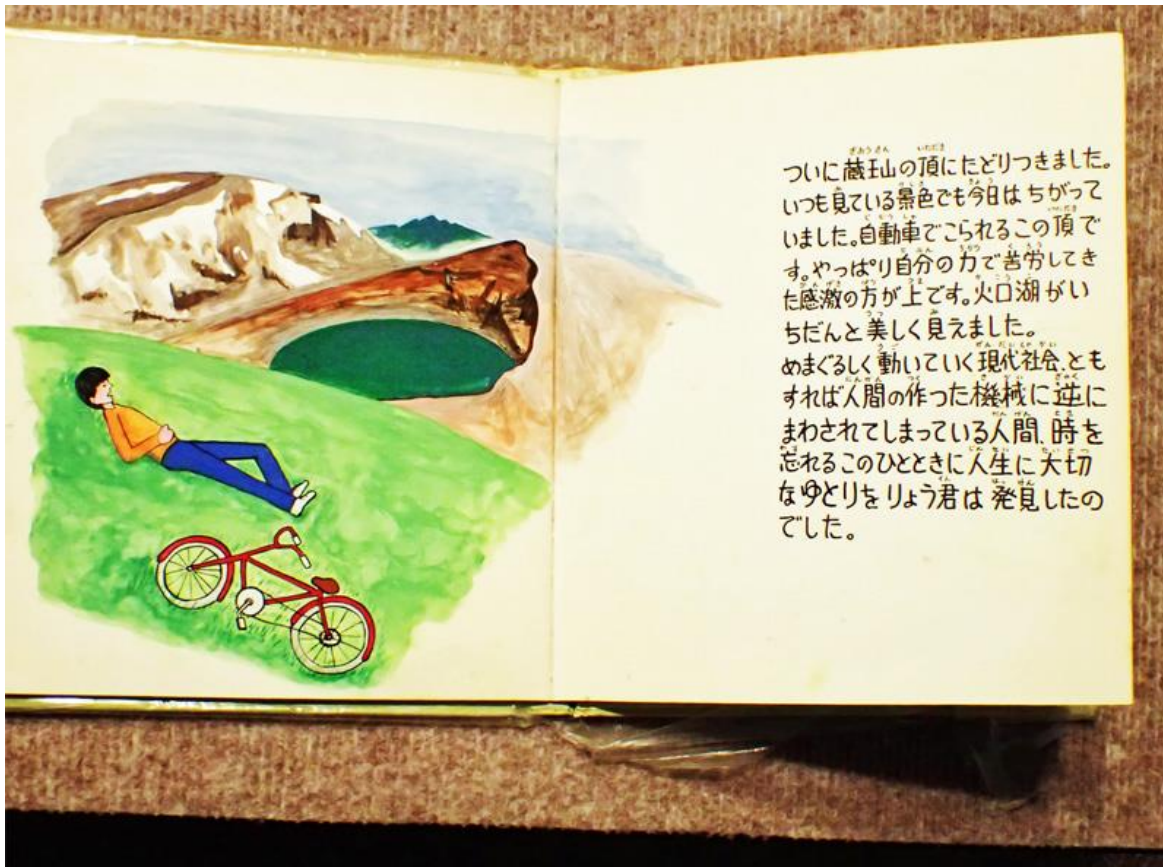 ついに蔵王山の頂にたどりつきました。
いつも見ている景色でも今日はちがって
いました。自動車でこられるこの頂で
す。やっぱり自分の力で苦労してき
た感激の方が上です。火口湖がい
ちだんと美しく見えました。
めまぐるしく動いていく現代社会、とも
すれば人間の作った機械に逆に
まわされてしまっている人間、時を
忘れるこのひとときに人生に大切
なゆとりをりょう君は発見したの
でした。